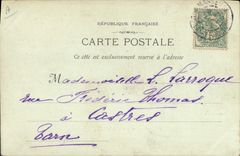 RÉPUBLIQUE FRANÇAISE
CARTE POSTALE
Ce côté est exclusivement réservé à l'adresse
Mademoiselle L. Larroque
rue Frédéric Thomas
à Castres
Tarn